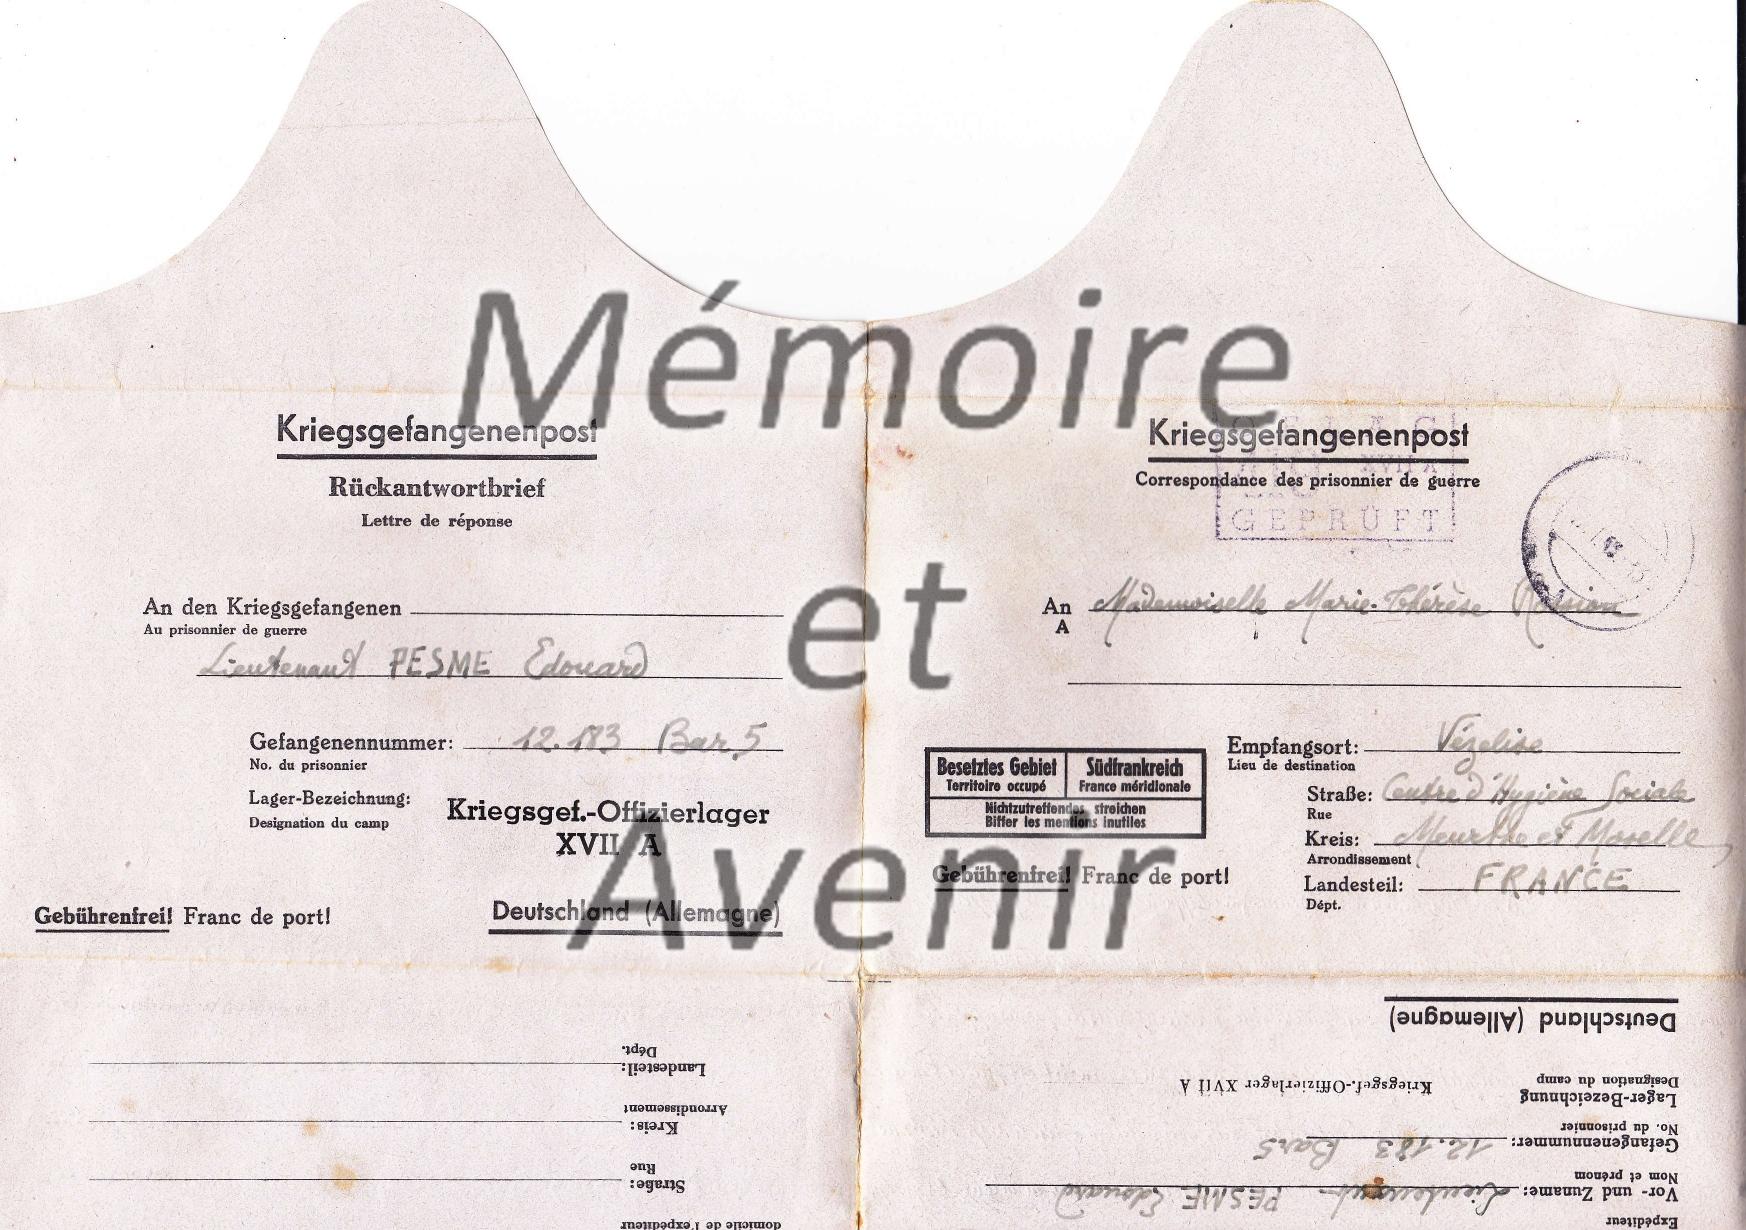 Mémoire
et
Avenir
Kriegsgefangenenpost
Rückantwortbrief
Lettre de réponse
An den Kriegsgefangenen
Au prisonnier de guerre
Lieutenant PESME Edouard
Gefangenennummer: 12.183 Bar 5
No. du prisonnier
Lager-Bezeichnung: Kriegsgef.-Offizierlager
Designation du camp XVII A
Gebührenfrei! Franc de port! Deutschland (Allemagne)
Kriegsgefangenenpost
Correspondance des prisonnier de guerre
XVII A
GEPRÜFT
An Mademoiselle Marie-Thérèse
A
Besetztes Gebiet Südfrankreich
Territoire occupé France méridionale
Nichtzutreffendes streichen
Biffer les mentions inutiles
Gebührenfrei! Franc de port!
Empfangsort: Vézelise
Lieu de destination
Straße: Centre d'Hygiène Sociale
Rue
Kreis: Meurthe et Moselle
Arrondissement
Landesteil: FRANCE
Dépt.
domicile de l'expéditeur
Straße:
Rue
Kreis:
Arrondissement
Landesteil:
Dépt.
Expéditeur
Vor- und Zuname: Lieutenant PESME Edouard
Nom et prénom
Gefangenennummer: 12.183 Bar 5
No. du prisonnier
Lager-Bezeichnung Kriegsgef.-Offizierlager XVII A
Designation du camp
Deutschland (Allemagne)